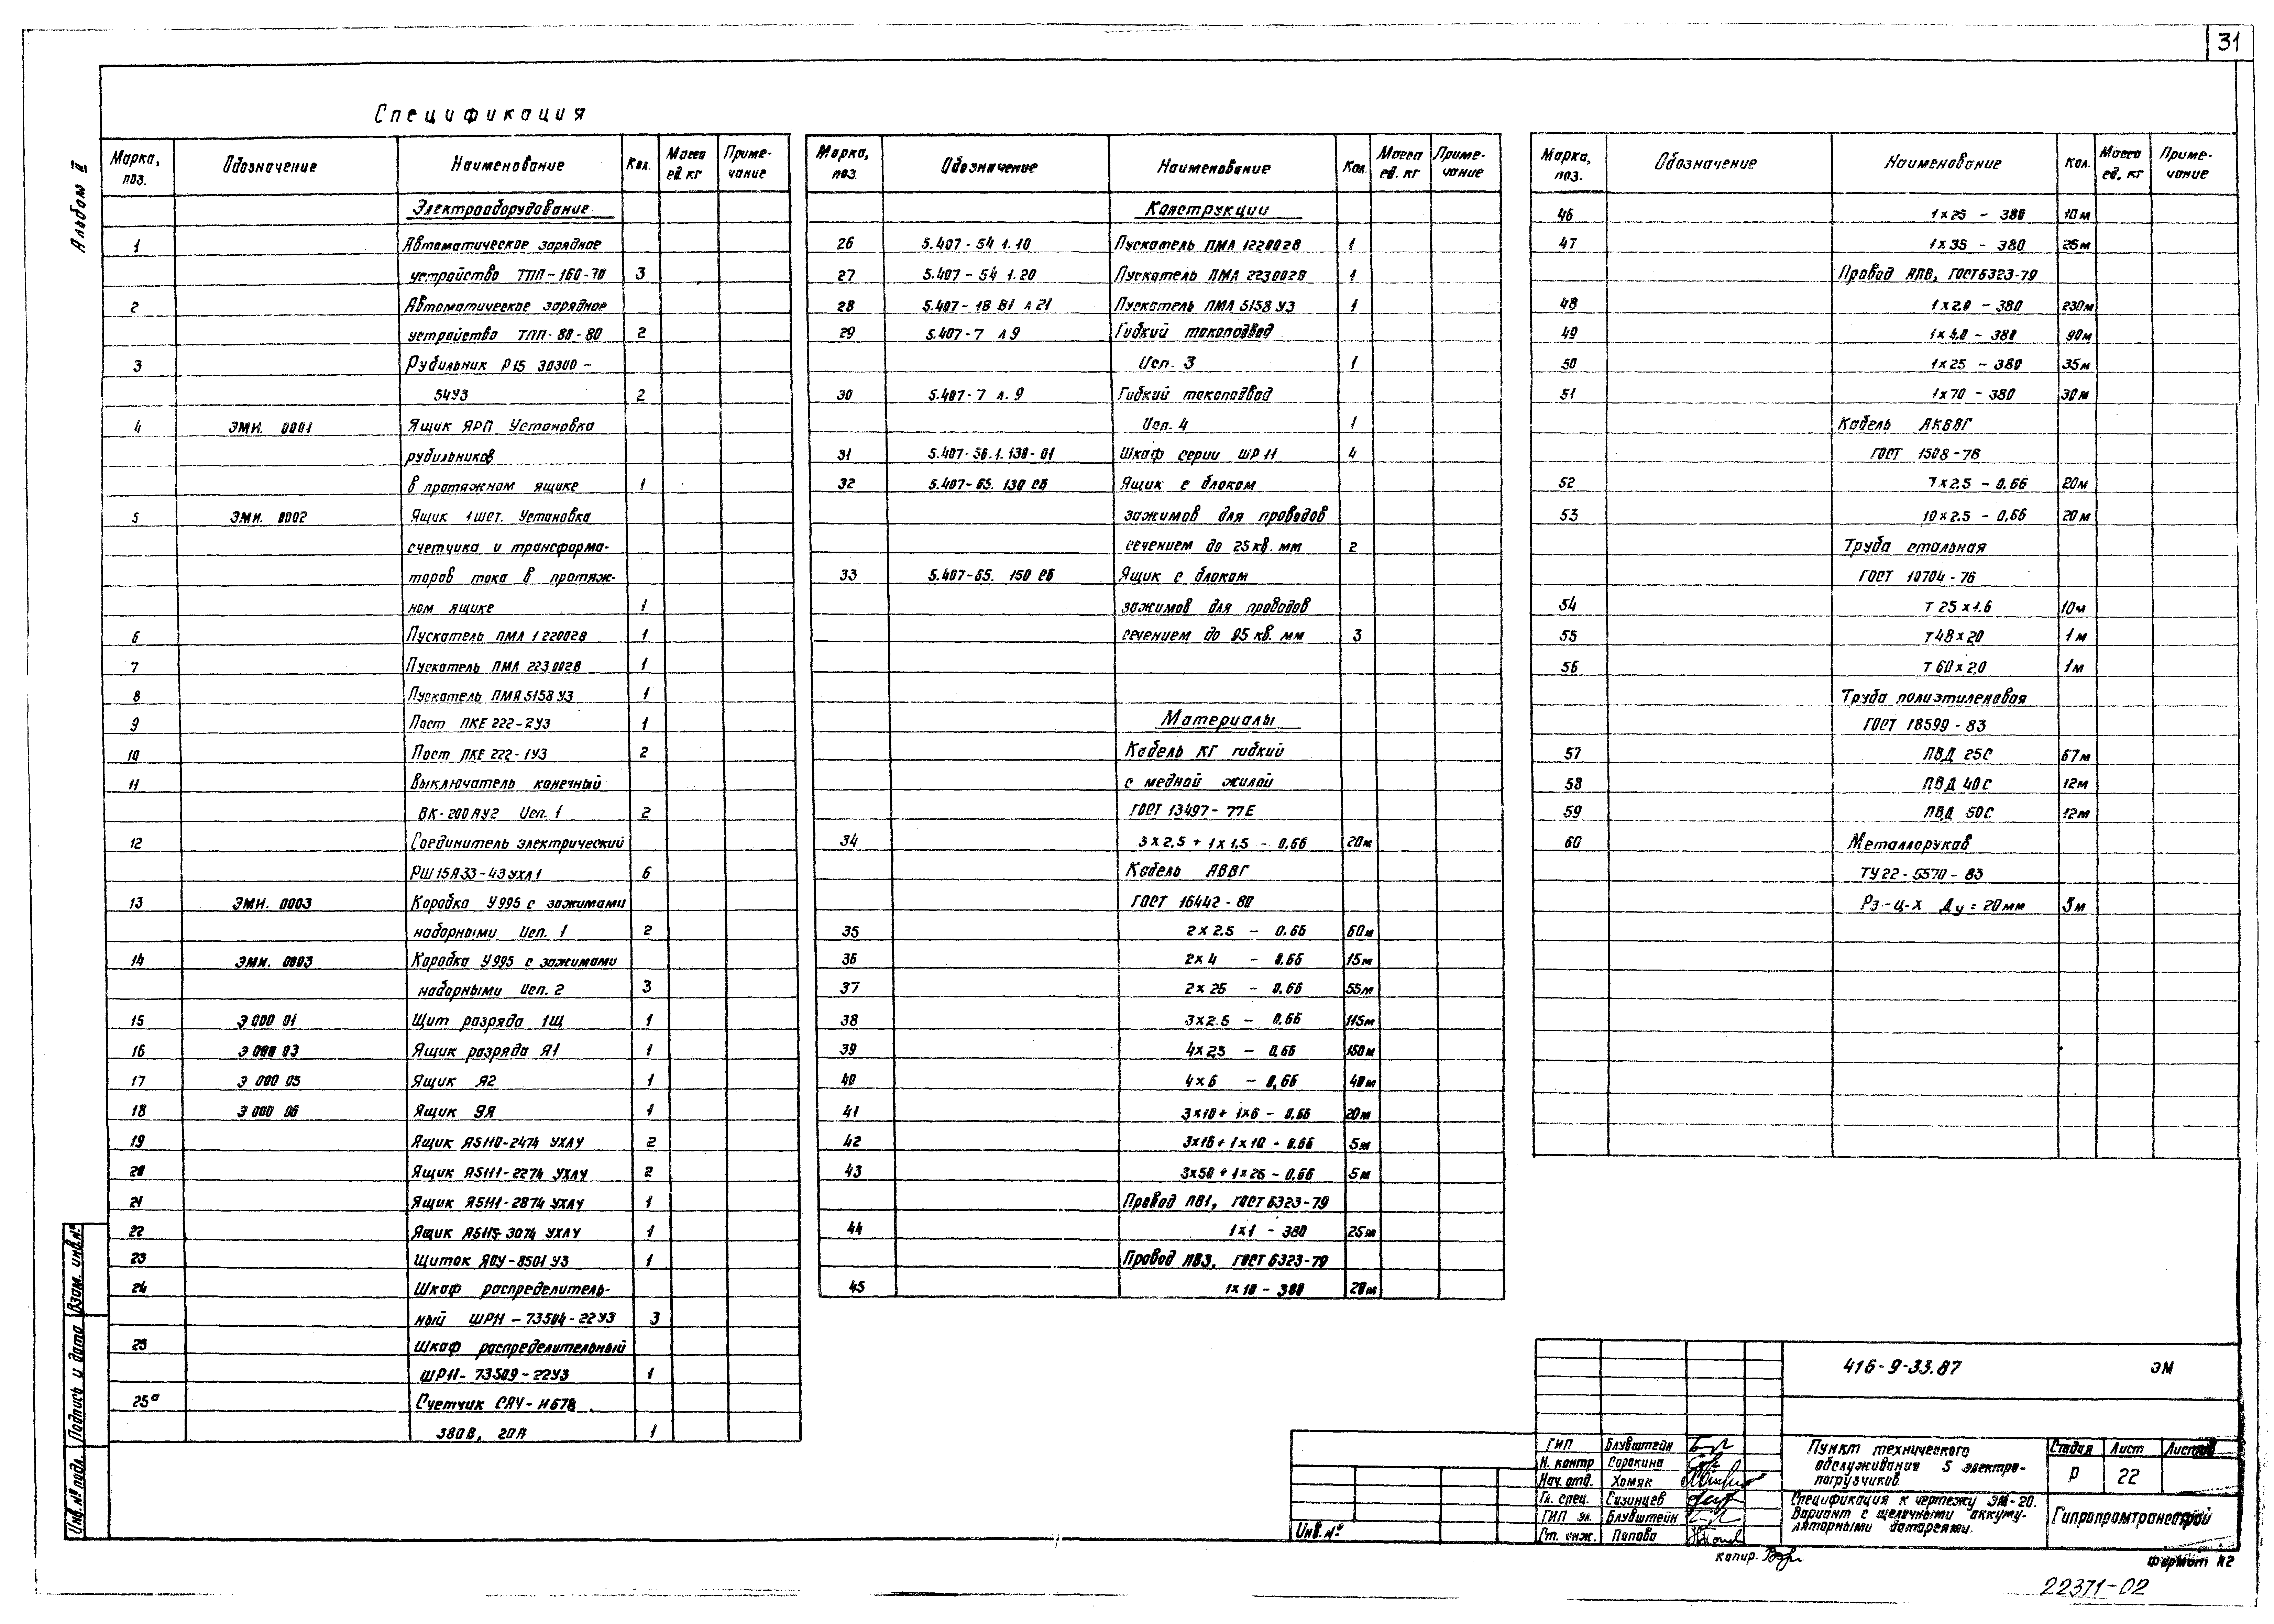 31
Альбом II
Спецификация
Марка, поз. Обозначение Наименование Кол. Масса ед. кг Приме-чание
Электрооборудование
1 Автоматическое зарядное
устройство ТПП-160-70 3
2 Автоматическое зарядное
устройство ТПП-80-80 2
3 Рубильник Р15 30300-
54У3 2
4 ЭМИ. 0001 Ящик ЯРП Установка
рубильников
в протяжном ящике 1
5 ЭМИ. 0002 Ящик 1шст. Установка
счетчика и трансформа-
торов тока в протяж-
ном ящике 1
6 Пускатель ПМЛ 122002В 1
7 Пускатель ПМЛ 223002В 1
8 Пускатель ПМЛ 5158 У3 1
9 Пост ПКЕ 222-2У3 1
10 Пост ПКЕ 222-1У3 2
11 Выключатель конечный
ВК-200АУ2 Исп. 1 2
12 Соединитель электрический
РШ15А33-43УХЛ1 6
13 ЭМИ. 0003 Коробка У995 с зажимами
наборными Исп. 1 2
14 ЭМИ. 0003 Коробка У995 с зажимами
наборными Исп. 2 3
15 Э 000 01 Щит разряда 1Щ 1
16 Э 000 03 Ящик разряда Я1 1
17 Э 000 05 Ящик Я2 1
18 Э 000 06 Ящик 9Я 1
19 Ящик Я5110-2474 УХЛУ 2
20 Ящик Я5111-2274 УХЛУ 2
21 Ящик Я5111-2874 УХЛУ 1
22 Ящик Я5115-3074 УХЛУ 1
23 Щиток ЯОУ-8501 У3 1
24 Шкаф распределитель-
ный ШР11-73504-22У3 3
25 Шкаф распределительный
ШР11-73509-22У3 1
25а Счетчик САУ-И678
380В, 20А 1
Марка, поз. Обозначение Наименование Кол. Масса ед. кг Приме-чание
Конструкции
26 5.407-54 1.10 Пускатель ПМЛ 122002В 1
27 5.407-54 1.20 Пускатель ПМЛ 223002В 1
28 5.407-18 В1 л 21 Пускатель ПМЛ 5158 У3 1
29 5.407-7 л 9 Гибкий токоподвод
Исп. 3 1
30 5.407-7 л. 9 Гибкий токоподвод
Исп. 4 1
31 5.407-56.1.130-01 Шкаф серии ШР11 4
32 5.407-65. 130 СБ Ящик с блоком
зажимов для проводов
сечением до 25 кв. мм 2
33 5.407-65. 150 СБ Ящик с блоком
зажимов для проводов
сечением до 95 кв. мм 3
Материалы
Кабель КГ гибкий
с медной жилой
ГОСТ 13497-77Е
34 3х2,5 + 1х1,5 - 0,66 20м
Кабель АВВГ
ГОСТ 16442-80
35 2х2.5 - 0.66 60м
36 2х4 - 0.66 15м
37 2х25 - 0,66 55м
38 3х2.5 - 0,66 115м
39 4х25 - 0,66 150м
40 4х6 - 0,66 40м
41 3х10 + 1х6 - 0,66 20м
42 3х16 + 1х10 - 0.66 5м
43 3х50 + 1х25 - 0,66 5м
Провод ПВ1, ГОСТ 6323-79
44 1х1 - 380 25м
Провод ПВ3, ГОСТ 6323-79
45 1х10 - 380 20м
Марка, поз. Обозначение Наименование Кол. Масса ед. кг Приме-чание
46 1х25 - 380 10м
47 1х35 - 380 25м
Провод АПВ, ГОСТ 6323-79
48 1х2,0 - 380 230м
49 1х4,0 - 380 90м
50 1х25 - 380 35м
51 1х70 - 380 30м
Кабель АКВВГ
ГОСТ 1508-78
52 7х2.5 - 0.66 20м
53 10х2.5 - 0,66 20м
Труба стальная
ГОСТ 10704-76
54 Т 25х1.6 10м
55 Т 48х20 1м
56 Т 60х2,0 1м
Труба полиэтиленовая
ГОСТ 18599-83
57 ПВД 25С 67м
58 ПВД 40С 12м
59 ПВД 50С 12м
60 Металлорукав
ТУ22-5570-83
Рз-Ц-Х Ду=20мм 5м
Взам. инв.№
Подпись и дата
Инв.№ подл.
Инв.№
416-9-33.87 ЭМ
ГИП Блувштейн
Н. контр Сорокина
Нач. отд. Хомяк
Гл. спец. Сизинцев
ГИП эл. Блувштейн
Ст. инж. Попова
Пункт технического
обслуживания 5 электро-
погрузчиков.
Стадия Лист Листов
Р 22
Спецификация к чертежу ЭМ-20.
Вариант с щелочными аккуму-
ляторными батареями.
Гипропромтрансстрой
копир.
Формат А2
22371-02